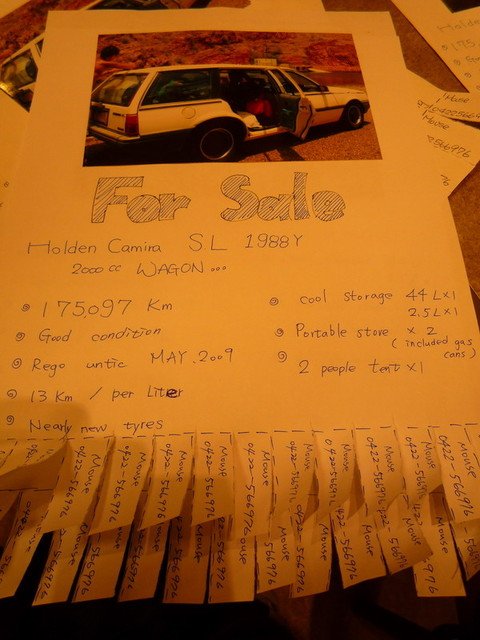 For Sale
Holden Camira SL 1988Y
2000cc WAGON...
175097 Km
Good condition
Rego untic MAY.2009
13 Km / per Liter
Nearly new tyres
cool storage 44L×1
2.5L×1
Portable stove × 2
(included gas
cans)
2 people tent ×1
Mouse
0422-566976
Mouse
0422-566976
Mouse
0422-566976
Mouse
0422-566976
Mouse
0422-566976
Mouse
0422-566976
Mouse
0422-566976
Mouse
0422-566976
Mouse
0422-566976
Mouse
0422-566976